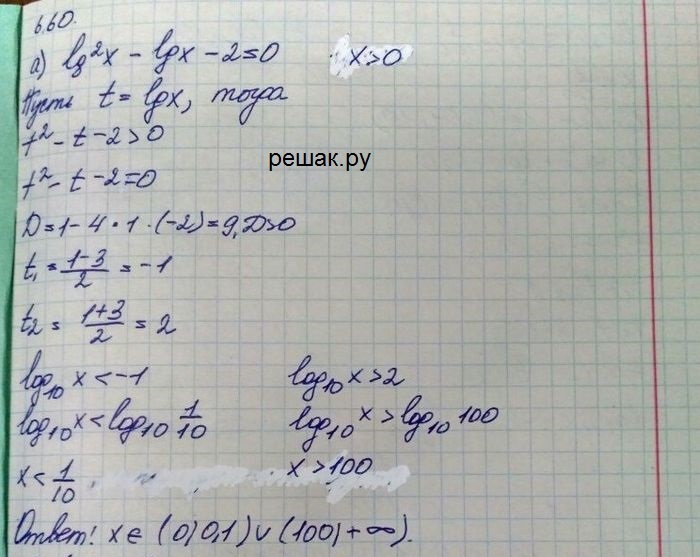 6.60.
а) lg²x - lgx - 2 = 0 x>0
Пусть t = lgx, тогда
t² - t - 2 > 0
решак.ру
t² - t - 2 = 0
D = 1 - 4 · 1 · (-2) = 9, D>0
t₁ = (1-3)/2 = -1
t₂ = (1+3)/2 = 2
log₁₀ x < -1 log₁₀ x > 2
log₁₀ x < log₁₀ 1/10 log₁₀ x > log₁₀ 100
x < 1/10 x > 100
Ответ: x ∈ (0; 0,1) ∪ (100; +∞).